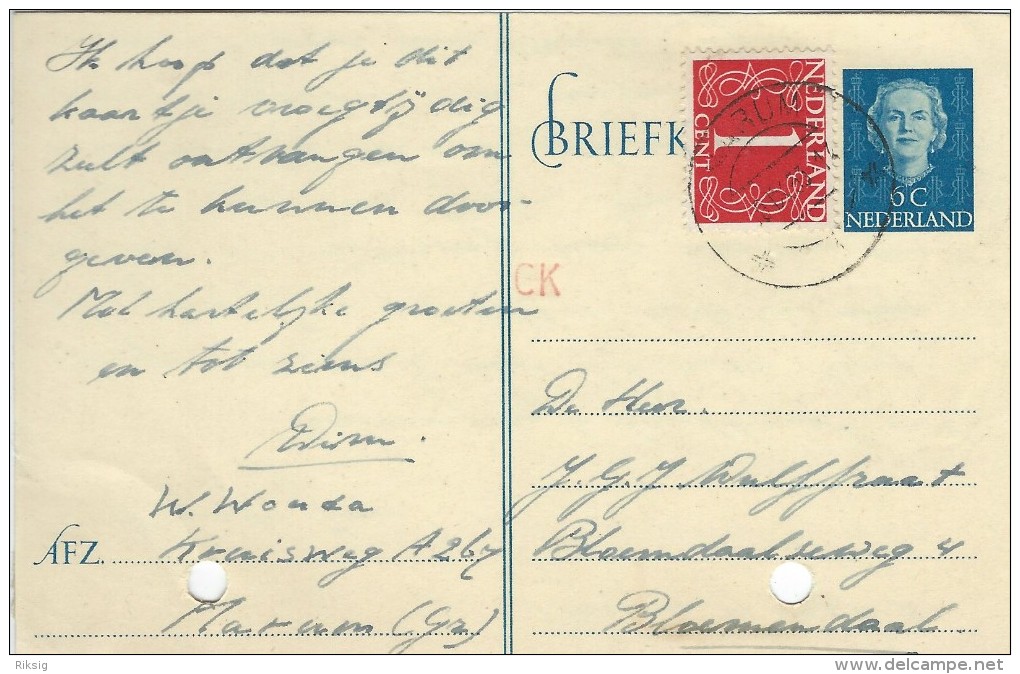 Ik hoop dat je dit
kaartje vroegtijdig
zult ontvangen om
het te kunnen door-
geven.
Met hartelijke groeten
en tot ziens
Wim.
W. Wouda
AFZ. Kruisweg A 267
Marum (Gr)
BRIEFK
NEDERLAND
1
CENT
MARUM
6 C
NEDERLAND
CK
De Heer.
J. G. J. Wulffraat
Bloemdaalseweg 4
Bloemendaal
Riksig
delcampe.net